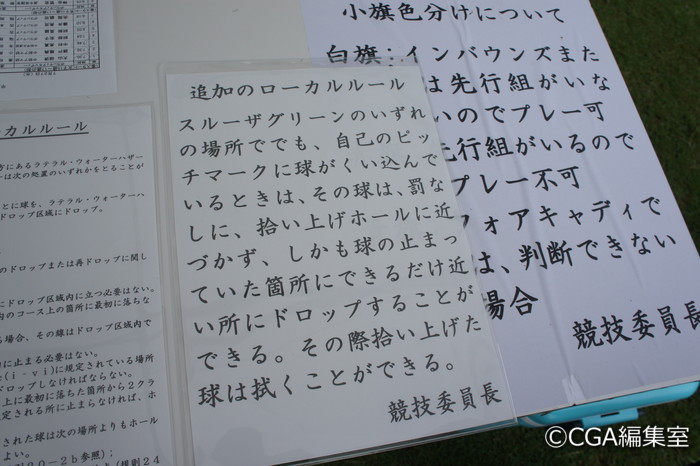 カルルール
方にあるラテラル・ウォーターハザー
ーは次の処置のいずれかをとることが
とに球を、ラテラル・ウォーターハ
ドロップ区域にドロップ。
のドロップまたは再ドロップに関し
ロップ区域内に立つ必要はない。
内のコース上の箇所に最初に落ちな
る場合、その線はドロップ区域内で
内に止まる必要はない。
(i-vi)に規定されている場所
ドロップしなければならない。
上に最初に落ちた箇所から2クラ
定される所に止まらなければ、ホ
された球は次の場所よりもホール
よい。
20-2b参照);
(規則24
追加のローカルルール
スルーザグリーンのいずれ
の場所ででも、自己のピッ
チマークに球がくい込んで
いるときは、その球は、罰な
しに、拾い上げホールに近
づかず、しかも球の止まっ
ていた箇所にできるだけ近
い所にドロップすることが
できる。その際拾い上げた
球は拭くことができる。
競技委員長
小旗色分けについて
白旗:インバウンズまた
は先行組がいな
いのでプレー可
先行組がいるので
プレー不可
フォアキャディで
は、判断できない
場合
競技委員長
©CGA編集室